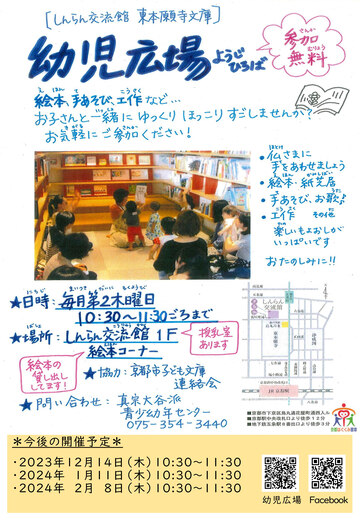 [しんらん交流館 東本願寺文庫]
幼児広場 ようじひろば
参加無料
絵本、手あそび、工作など…
お子さんと一緒にゆっくりほっこりすごしませんか?
お気軽にご参加ください!
・仏さまに
手をあわせましょう
・絵本・紙芝居
・手あそび、お歌♪
・工作 その他
楽しいもよおしが
いっぱいです
おたのしみに!!
★日時:毎月第2木曜日
10:30〜11:30ごろまで
★場所:しんらん交流館1F
絵本コーナー
授乳室あります
絵本の
貸し出し
してます!
★協力:京都子ども文庫
連絡会
★問い合わせ:真宗大谷派
青少幼年センター
075-354-3440
しんらん交流館
東本願寺
JR京都駅
＊今後の開催予定＊
・2023年12月14日(木)10:30〜11:30
・2024年 1月11日(木)10:30〜11:30
・2024年 2月 8日(木)10:30〜11:30
幼児広場 Facebook